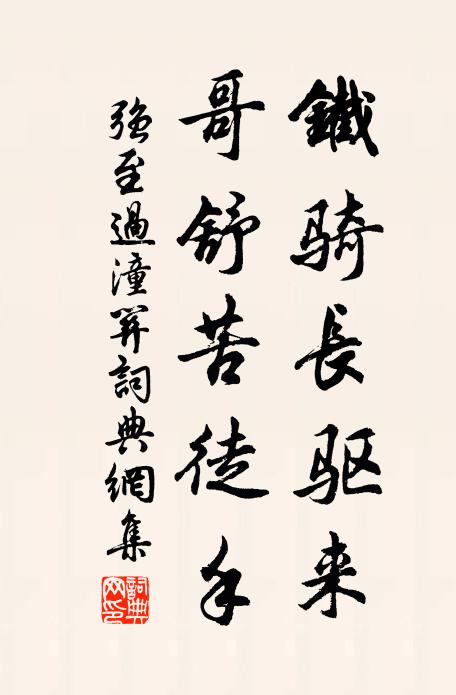 鐵骑長驱来
哥舒苦徒手
强至過潼関詞典網集
詞典網印